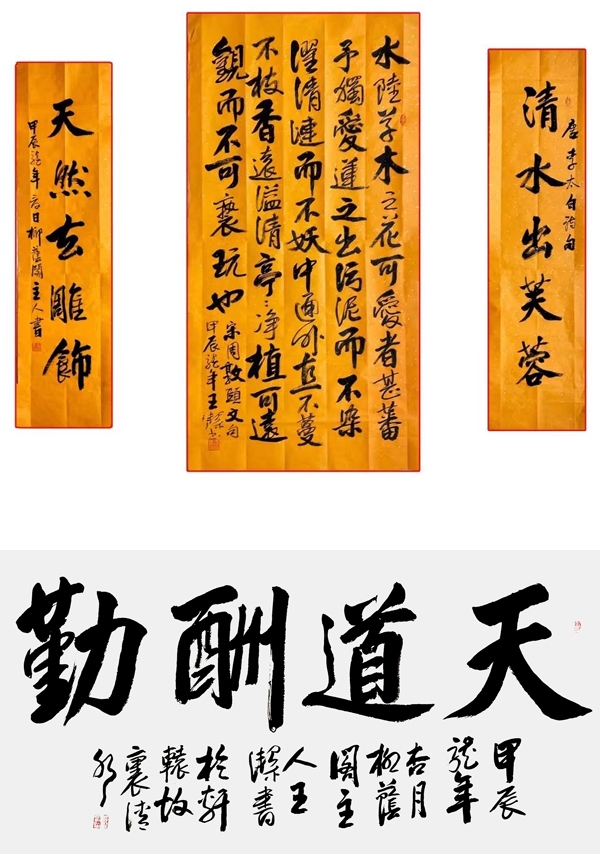 唐李太白詩句
清水出芙蓉
水陸草木之花可愛者甚蕃
予獨愛蓮之出污泥而不染
濯清漣而不妖中通外直不蔓
不枝香遠溢清亭亭净植可遠
觀而不可褻玩也
宋周敦頤文句
甲辰龍年王潔书
天然去雕飾
甲辰龍年春日柳蔭閣主人書
天道酬勤
甲辰
龍年
杏月
柳蔭
閣主
人王
潔書
於軒
轅故
裏清
水